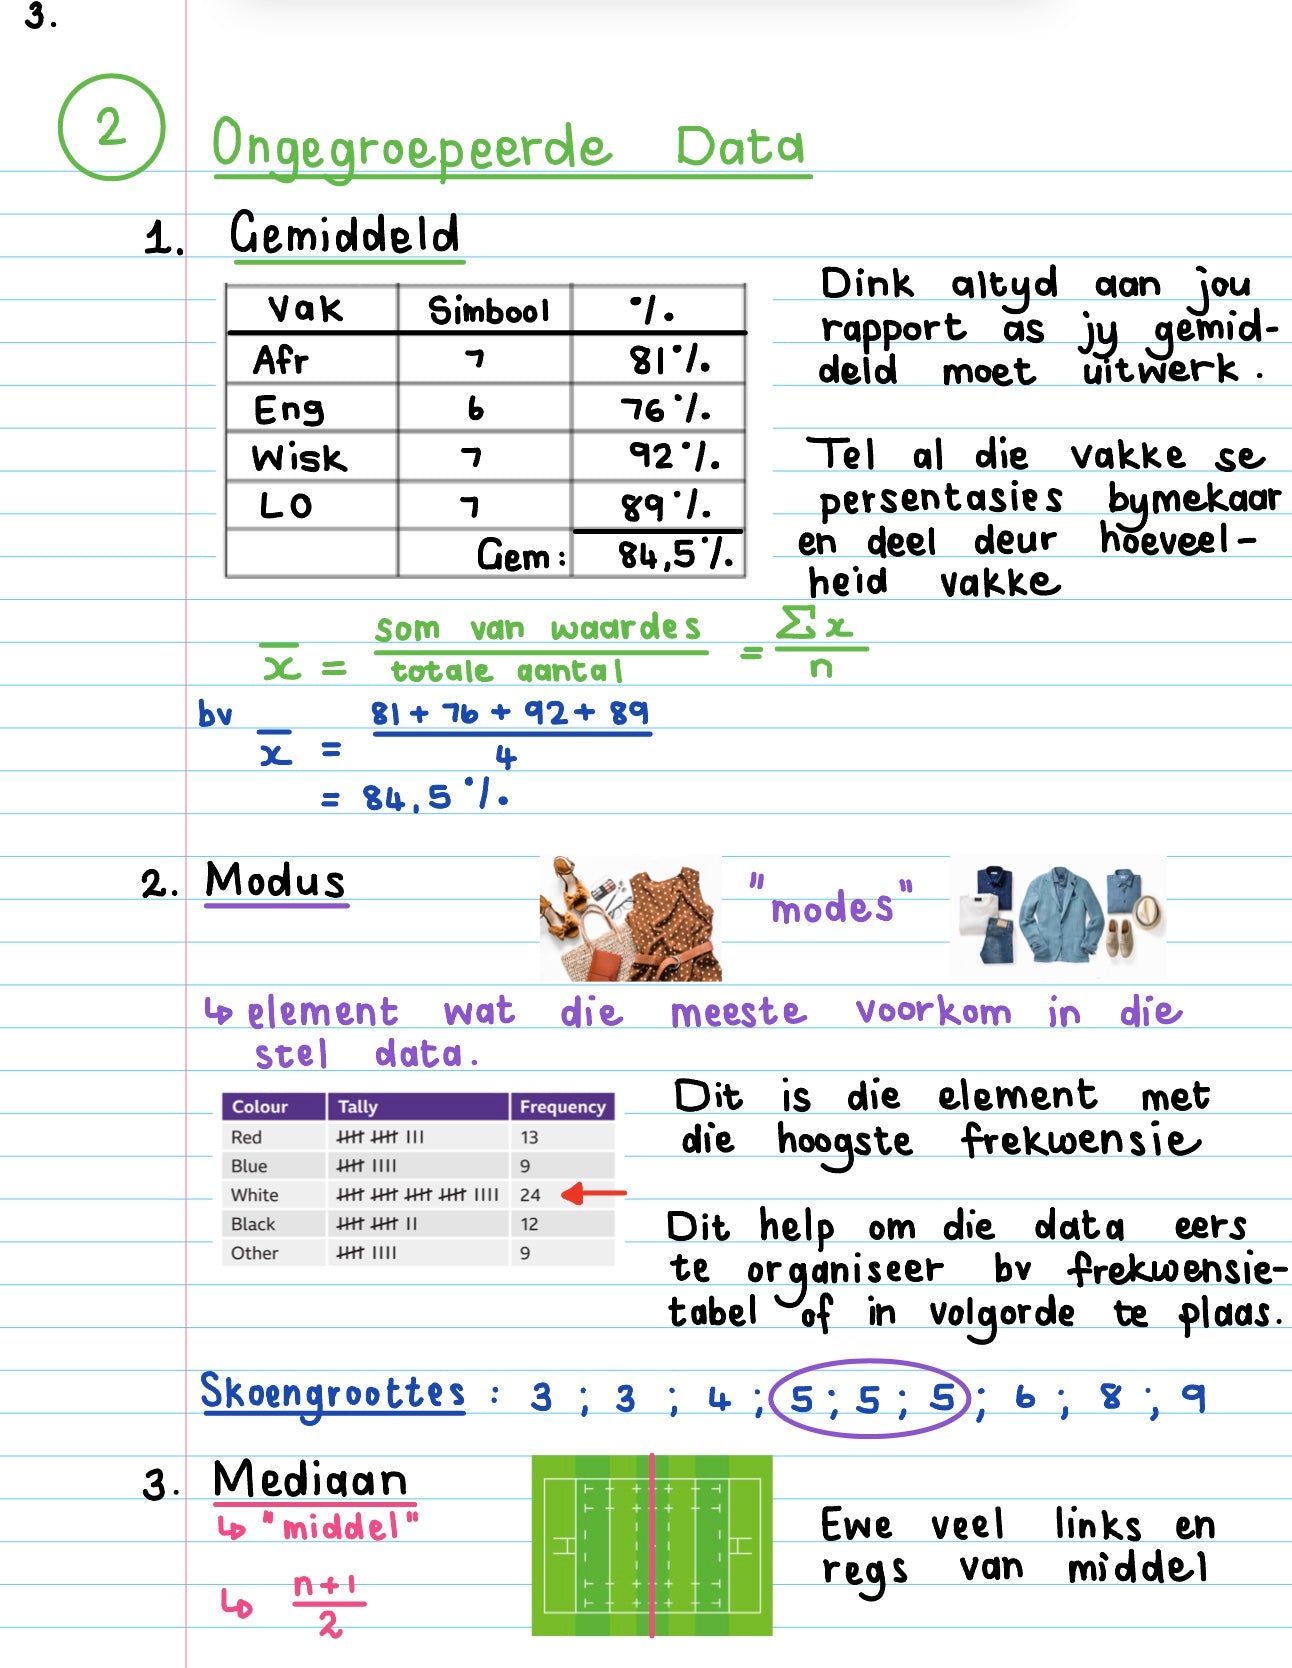 3.
2 Ongegroepeerde Data
1. Gemiddeld
Vak Simbool %
Afr 7 81%
Eng 6 76%
Wisk 7 92%
LO 7 89%
Gem: 84,5%
Dink altyd aan jou
rapport as jy gemid-
deld moet uitwerk.
Tel al die vakke se
persentasies bymekaar
en deel deur hoeveel-
heid vakke
x̄ = som van waardes / totale aantal = Σx / n
bv x̄ = 81 + 76 + 92 + 89 / 4
= 84,5%
2. Modus "modes"
↳ element wat die meeste voorkom in die
stel data.
Colour Tally Frequency
Red 𝍸 𝍸 III 13
Blue 𝍸 IIII 9
White 𝍸 𝍸 𝍸 𝍸 IIII 24
Black 𝍸 𝍸 II 12
Other 𝍸 IIII 9
Dit is die element met
die hoogste frekwensie
Dit help om die data eers
te organiseer bv frekwensie-
tabel of in volgorde te plaas.
Skoengroottes : 3 ; 3 ; 4 ; 5 ; 5 ; 5 ; 6 ; 8 ; 9
3. Mediaan
↳ "middel"
↳ n+1 / 2
Ewe veel links en
regs van middel